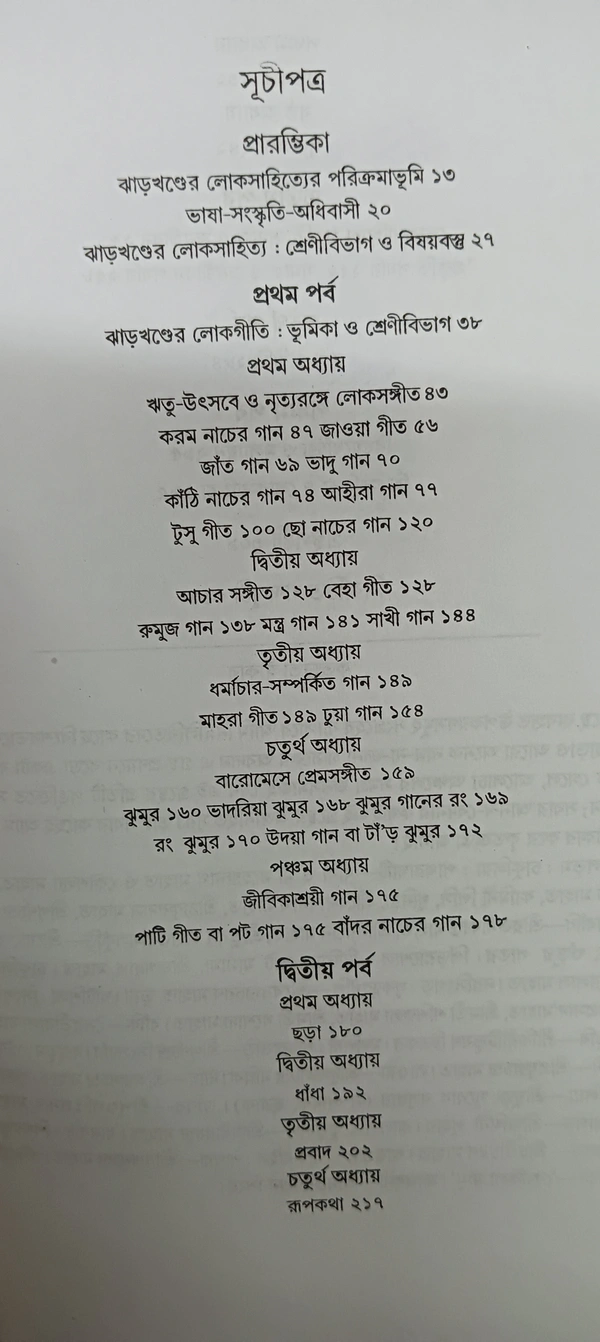 সূচীপত্র
প্রারম্ভিকা
ঝাড়খণ্ডের লোকসাহিত্যের পরিক্রমাভূমি ১৩
ভাষা-সংস্কৃতি-অধিবাসী ২০
ঝাড়খণ্ডের লোকসাহিত্য : শ্রেণীবিভাগ ও বিষয়বস্তু ২৭
প্রথম পর্ব
ঝাড়খণ্ডের লোকগীতি : ভূমিকা ও শ্রেণীবিভাগ ৩৮
প্রথম অধ্যায়
ঋতু-উৎসবে ও নৃত্যরঙ্গে লোকসঙ্গীত ৪৩
করম নাচের গান ৪৭ জাওয়া গীত ৫৬
জাঁত গান ৬৯ ভাদু গান ৭০
কাঁঠি নাচের গান ৭৪ আহীরা গান ৭৭
টুসু গীত ১০০ ছো নাচের গান ১২০
দ্বিতীয় অধ্যায়
আচার সঙ্গীত ১২৮ বেহা গীত ১২৮
রুমুজ গান ১৩৮ মন্ত্র গান ১৪১ সাখী গান ১৪৪
তৃতীয় অধ্যায়
ধর্মাচার-সম্পর্কিত গান ১৪৯
মাহরা গীত ১৪৯ ঢুয়া গান ১৫৪
চতুর্থ অধ্যায়
বারোমেসে প্রেমসঙ্গীত ১৫৯
ঝুমুর ১৬০ ভাদরিয়া ঝুমুর ১৬৮ ঝুমুর গানের রং ১৬৯
রং ঝুমুর ১৭০ উদয়া গান বা টাঁ'ড় ঝুমুর ১৭২
পঞ্চম অধ্যায়
জীবিকাশ্রয়ী গান ১৭৫
পাটি গীত বা পট গান ১৭৫ বাঁদর নাচের গান ১৭৮
দ্বিতীয় পর্ব
প্রথম অধ্যায়
ছড়া ১৮০
দ্বিতীয় অধ্যায়
ধাঁধা ১৯২
তৃতীয় অধ্যায়
প্রবাদ ২০২
চতুর্থ অধ্যায়
রূপকথা ২১৭